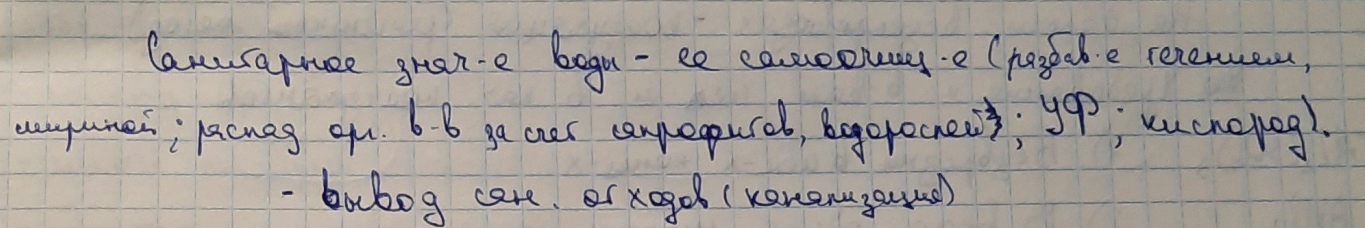 Санитарное знач-е воды - ее самоочищ-е (разбав-е течением,
шириной; распад орг. в-в за счет сапрофитов, водорослей); УФ; кислород).
- вывод сан. отходов (канализация)